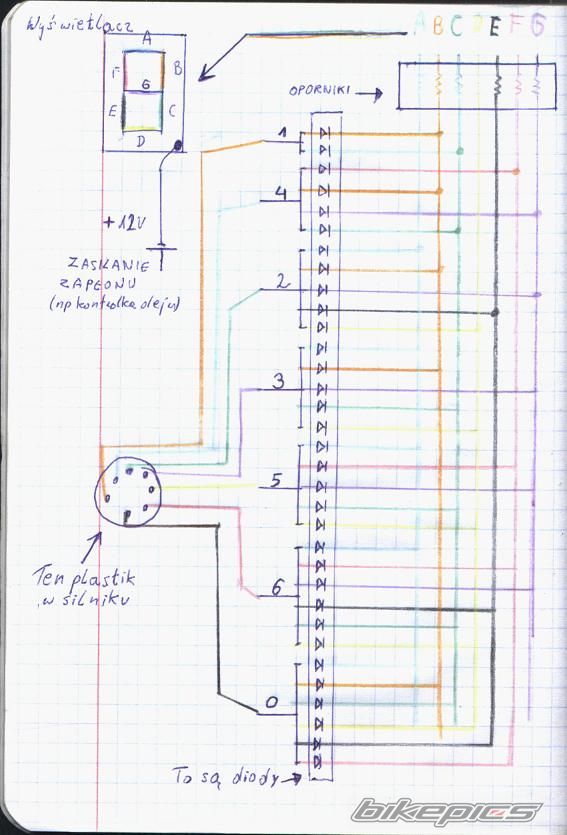 Wyświetlacz
A
F B
G
E C
D
A B C D E F G
OPORNIKI
+12V
ZASILANIE
ZAPŁONU
(np kontrolka oleju)
1
4
2
3
5
6
0
Ten plastik
w silniku
To są diody
bikepics